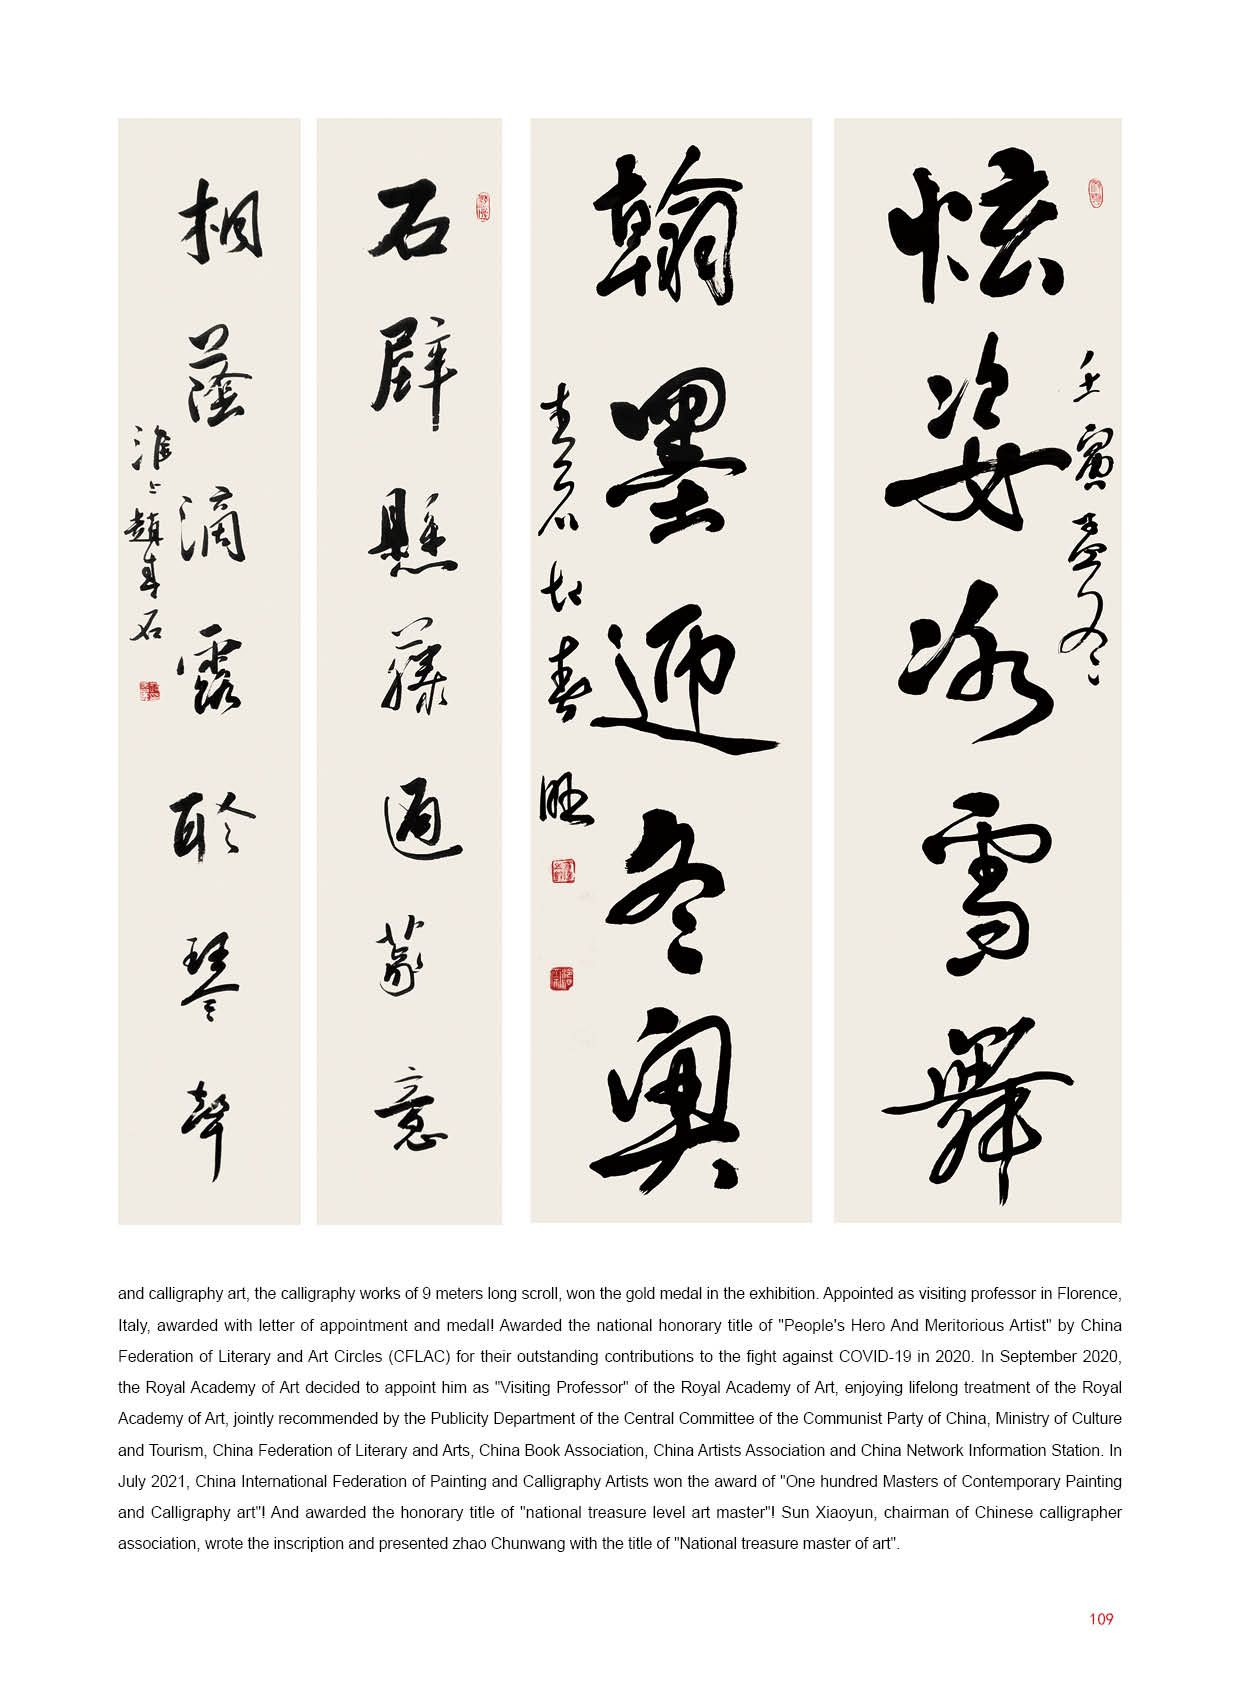 炫姿冰雪舞
壬寅孟冬
翰墨迎冬奥
春石赵春旺
石壁懸藤通篆意
桐蔭滴露聆琴聲
淮上趙春石
and calligraphy art, the calligraphy works of 9 meters long scroll, won the gold medal in the exhibition. Appointed as visiting professor in Florence,
Italy, awarded with letter of appointment and medal! Awarded the national honorary title of "People's Hero And Meritorious Artist" by China
Federation of Literary and Art Circles (CFLAC) for their outstanding contributions to the fight against COVID-19 in 2020. In September 2020,
the Royal Academy of Art decided to appoint him as "Visiting Professor" of the Royal Academy of Art, enjoying lifelong treatment of the Royal
Academy of Art, jointly recommended by the Publicity Department of the Central Committee of the Communist Party of China, Ministry of Culture
and Tourism, China Federation of Literary and Arts, China Book Association, China Artists Association and China Network Information Station. In
July 2021, China International Federation of Painting and Calligraphy Artists won the award of "One hundred Masters of Contemporary Painting
and Calligraphy art"! And awarded the honorary title of "national treasure level art master"! Sun Xiaoyun, chairman of Chinese calligrapher
association, wrote the inscription and presented zhao Chunwang with the title of "National treasure master of art".
109